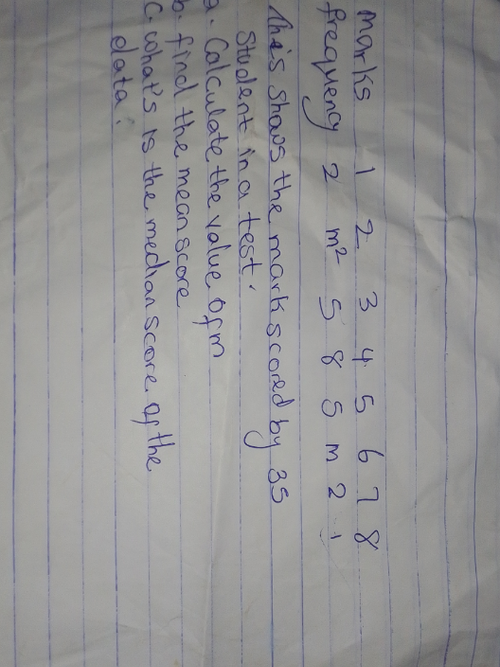 marks 1 2 3 4 5 6 7 8
frequency 2 m² 5 8 5 m 2 1
This shows the mark scored by 35
Student in a test.
a. Calculate the value of m
b. find the mean score
c. what's is the median score of the
data.